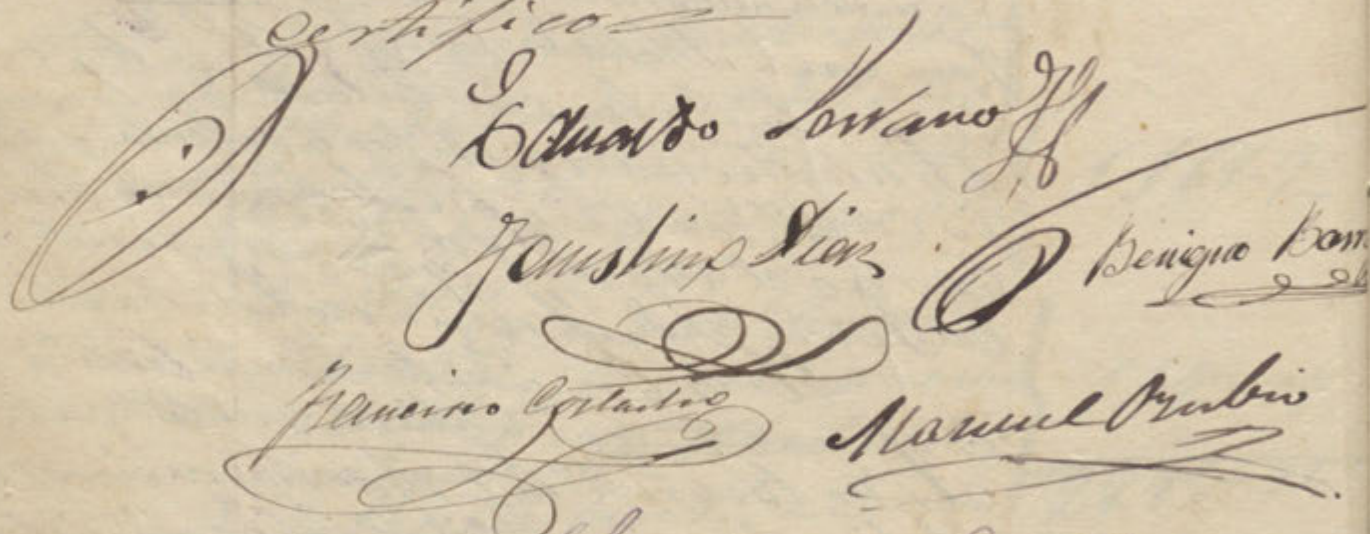 certifico=
Eduardo Serrano
Faustino Diaz
Benigno Barr
Francisco
Manuel Rubio